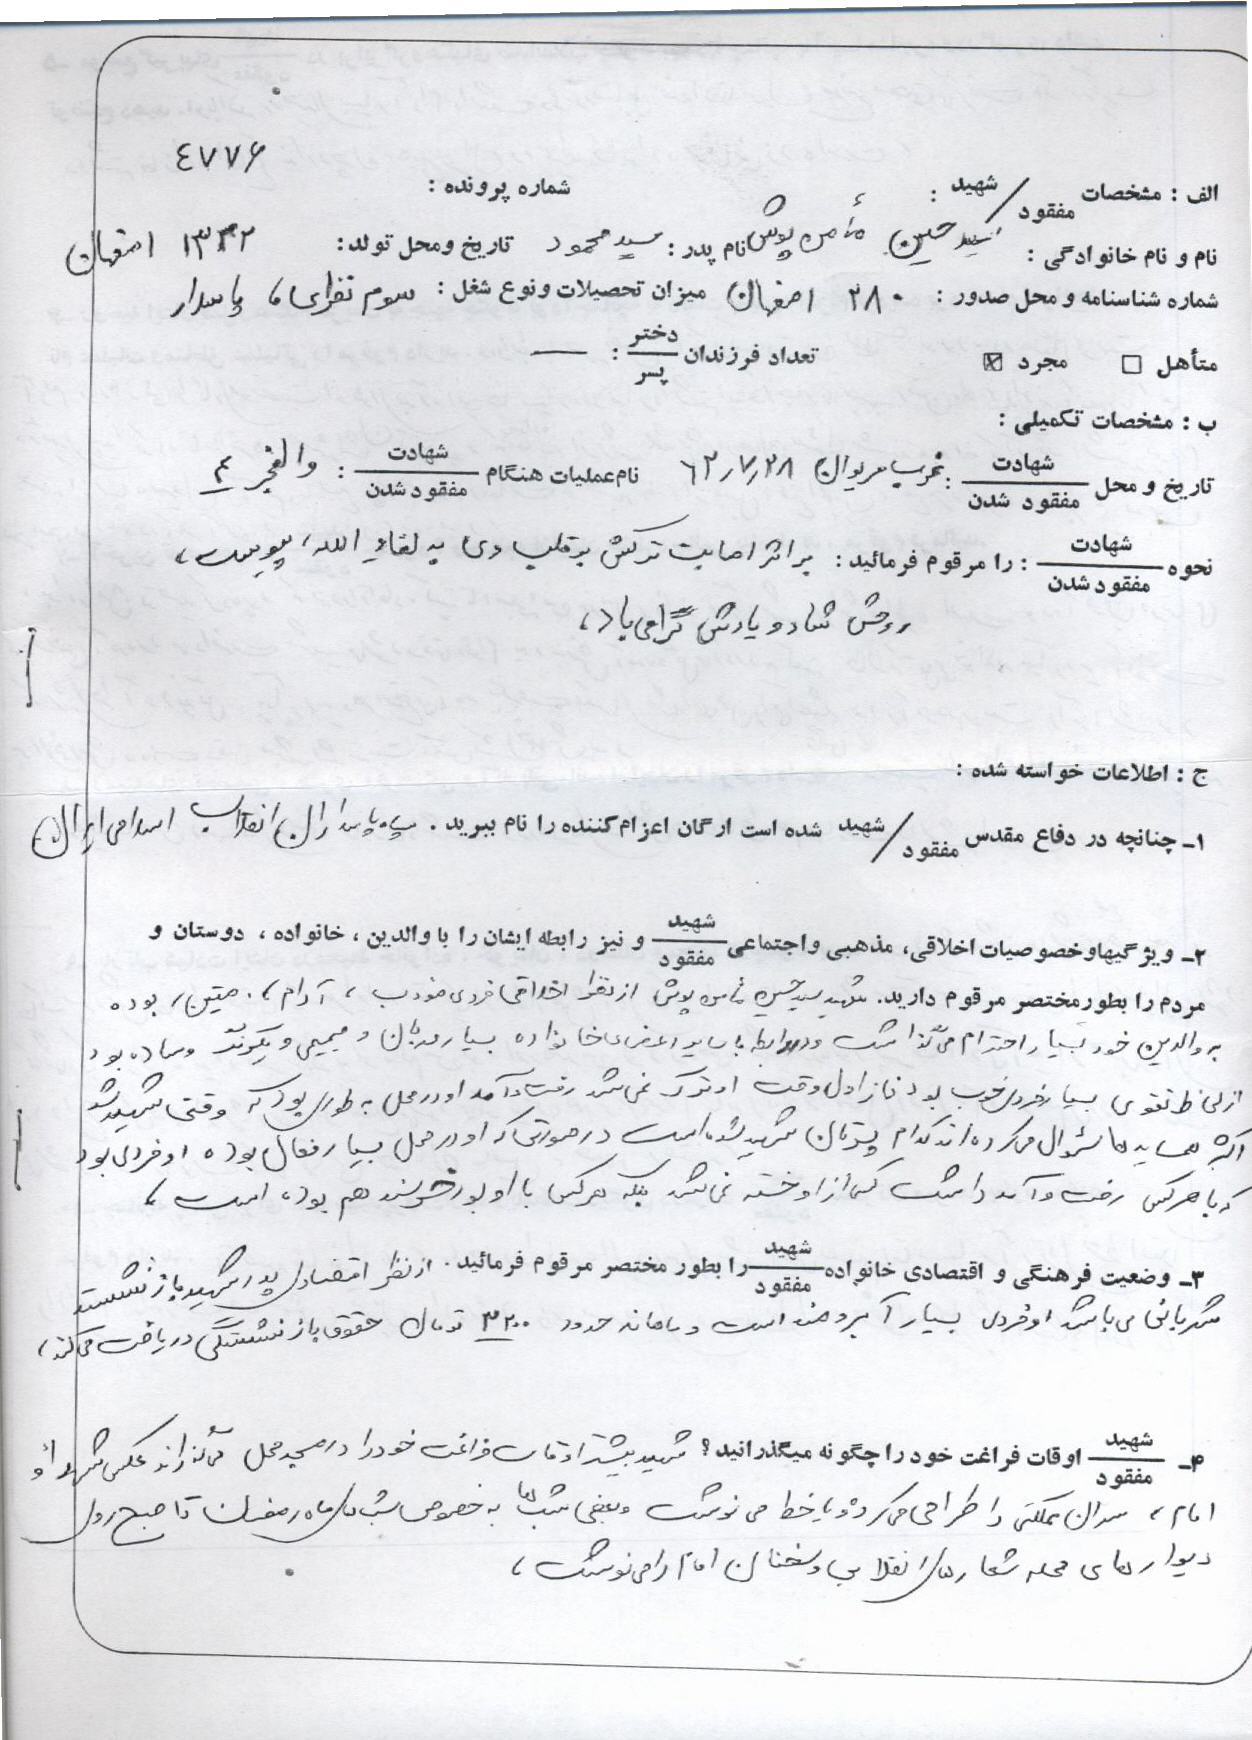 ٤٧٧۶
الف : مشخصات شهید/مفقود : شماره پرونده :
نام و نام خانوادگی : سید حسین پوش نام پدر : سید محمود تاریخ ومحل تولد: اصفهان
شماره شناسنامه و محل صدور : ۲۸۰ اصفهان میزان تحصیلات ونوع شغل : سوم پاسدار
متأهل ☐ مجرد ☒ تعداد فرزندان دختر/پسر : —
ب : مشخصات تکمیلی :
تاریخ و محل شهادت/مفقود شدن : مریوان ۶۲٫۷٫۲۸ نام عملیات هنگام شهادت/مفقود شدن : والفجر ۴
نحوه شهادت/مفقود شدن : را مرقوم فرمائید : بر اثر اصابت ترکش بر قلب وی به لقاء الله پیوست،
روحش شاد و یادش گرامی باد،
ج : اطلاعات خواسته شده :
۱ـ چنانچه در دفاع مقدس شهید/مفقود شده است ارگان اعزام کننده را نام ببرید . سپاه پاسداران انقلاب اسلامی ایران
۲ـ ویژگیها و خصوصیات اخلاقی، مذهبی و اجتماعی شهید/مفقود و نیز رابطه ایشان را با والدین ، خانواده ، دوستان و
مردم را بطور مختصر مرقوم دارید. شهید سید حسین پوش از نظر اخلاقی فردی خوب ، آرام ، متین، بوده
به والدین خود بسیار احترام می‌گذاشت و در رابطه با سایر اعضای خانواده بسیار مهربان و صمیمی و یکرنگ و ساده بود
از لحاظ تقوی بسیار فردی خوب بود نماز اول وقت او ترک نمی شد رفت و آمد او در محل به طوری بود که وقتی شهید شد
اکثر همسایه ها سئوال می کرده اند کدام پسرتان شهید شده است در صورتی که او در محل بسیار فعال بوده او فردی بود
که با هر کس رفت و آمد داشت کسی از او خسته نمی شد بلکه هر کس با او بود خرسند هم بوده است ،
۳ـ وضعیت فرهنگی و اقتصادی خانواده شهید/مفقود را بطور مختصر مرقوم فرمائید . از نظر اقتصادی پدر شهید بازنشسته
شهربانی می باشد او فردی بسیار آبرومند است و ماهانه حدود ۳۲۰۰ تومان حقوق بازنشستگی دریافت می کند،
۴ـ شهید/مفقود اوقات فراغت خود را چگونه میگذرانید؟ شهید بیشتر اوقات فراغت خود را در مسجد محل می گذراند عکس شهدا و
امام ، سران مملکتی را طراحی می کرد و یا خط می نوشت و بعضی شبها به خصوص شب های ماه رمضان تا صبح روی
دیوارهای محله شعارهای انقلابی و سخنان امام را می نوشت ،